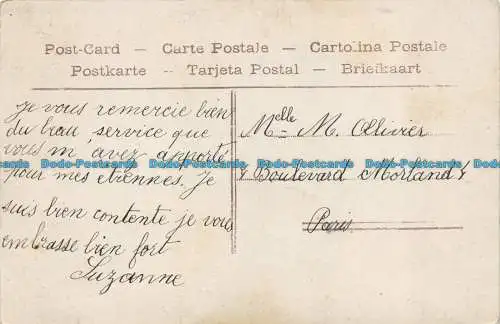 Post-Card — Carte Postale — Cartolina Postale
Postkarte -- Tarjeta Postal — Briefkaart
je vous remercie bien
du beau service que
vous m'avez apporté
pour mes etrennes. Je
suis bien contente je vous
embrasse bien fort
Suzanne
Melle M. Ollivier
4 Boulevard Morland 4
Paris
Dodo-Postcards Dodo-Postcards Dodo-Postcards Dodo-Postcards